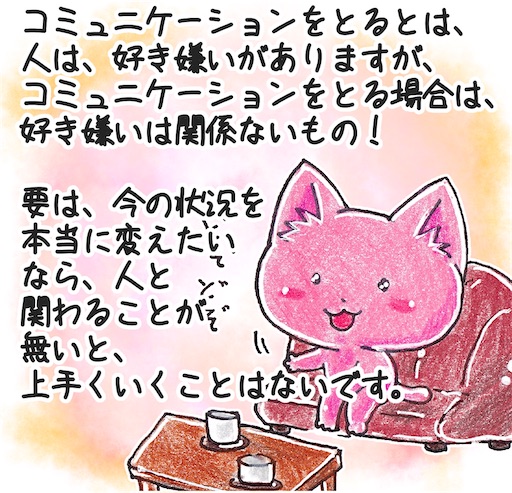 コミュニケーションをとるとは、
人は、好き嫌いがありますが、
コミュニケーションをとる場合は、
好き嫌いは関係ないもの！
要は、今の状況を
本当に変えたい
なら、人と
関わることが
無いと、
上手くいくことはないです。